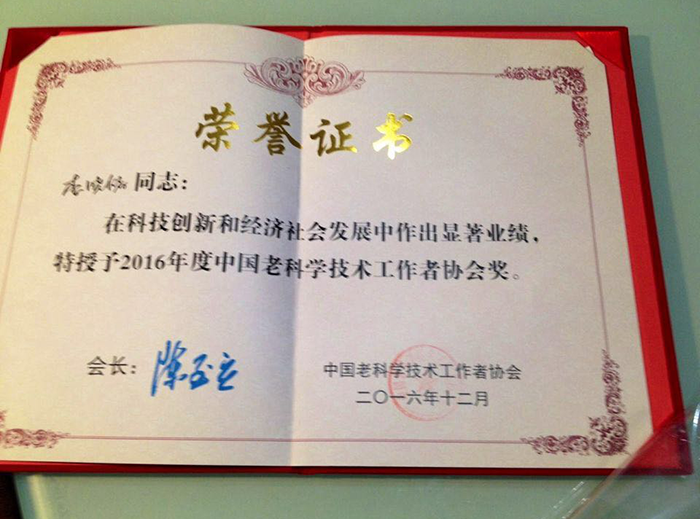 荣誉证书
同志：
在科技创新和经济社会发展中作出显著业绩，
特授予2016年度中国老科学技术工作者协会奖。
会长：陈至立
中国老科学技术工作者协会
二〇一六年十二月